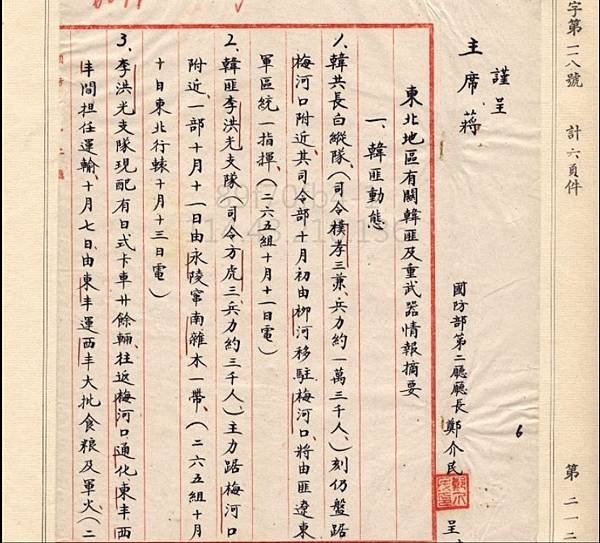 字第一一八號　計六頁件　第二一二
謹呈
主席　蔣
國防部第二廳廳長　鄭介民　呈
6
東北地區有關韓匪及重武器情報摘要
一、韓匪動態
1、韓共長白縱隊、(司令樸孝三兼、兵力約一萬三千人、)刻仍盤踞
梅河口附近、其司令部十月初由柳河移駐梅河口、將由匪遼東
軍區統一指揮、(二六五組十月十一日電)
2、韓匪李洪光支隊(司令方虎三、兵力約三千人、)主力踞梅河口
附近、一部十月十一日由永陵竄南雜木一帶、(二六五組十月
十日東北行轅十月十三日電)
3、李洪光支隊現配有日式卡車廿餘輛、往返梅河口通化東丰西
丰間担任運輸、十月七日、由東丰運西丰大批食粮及軍火、(二